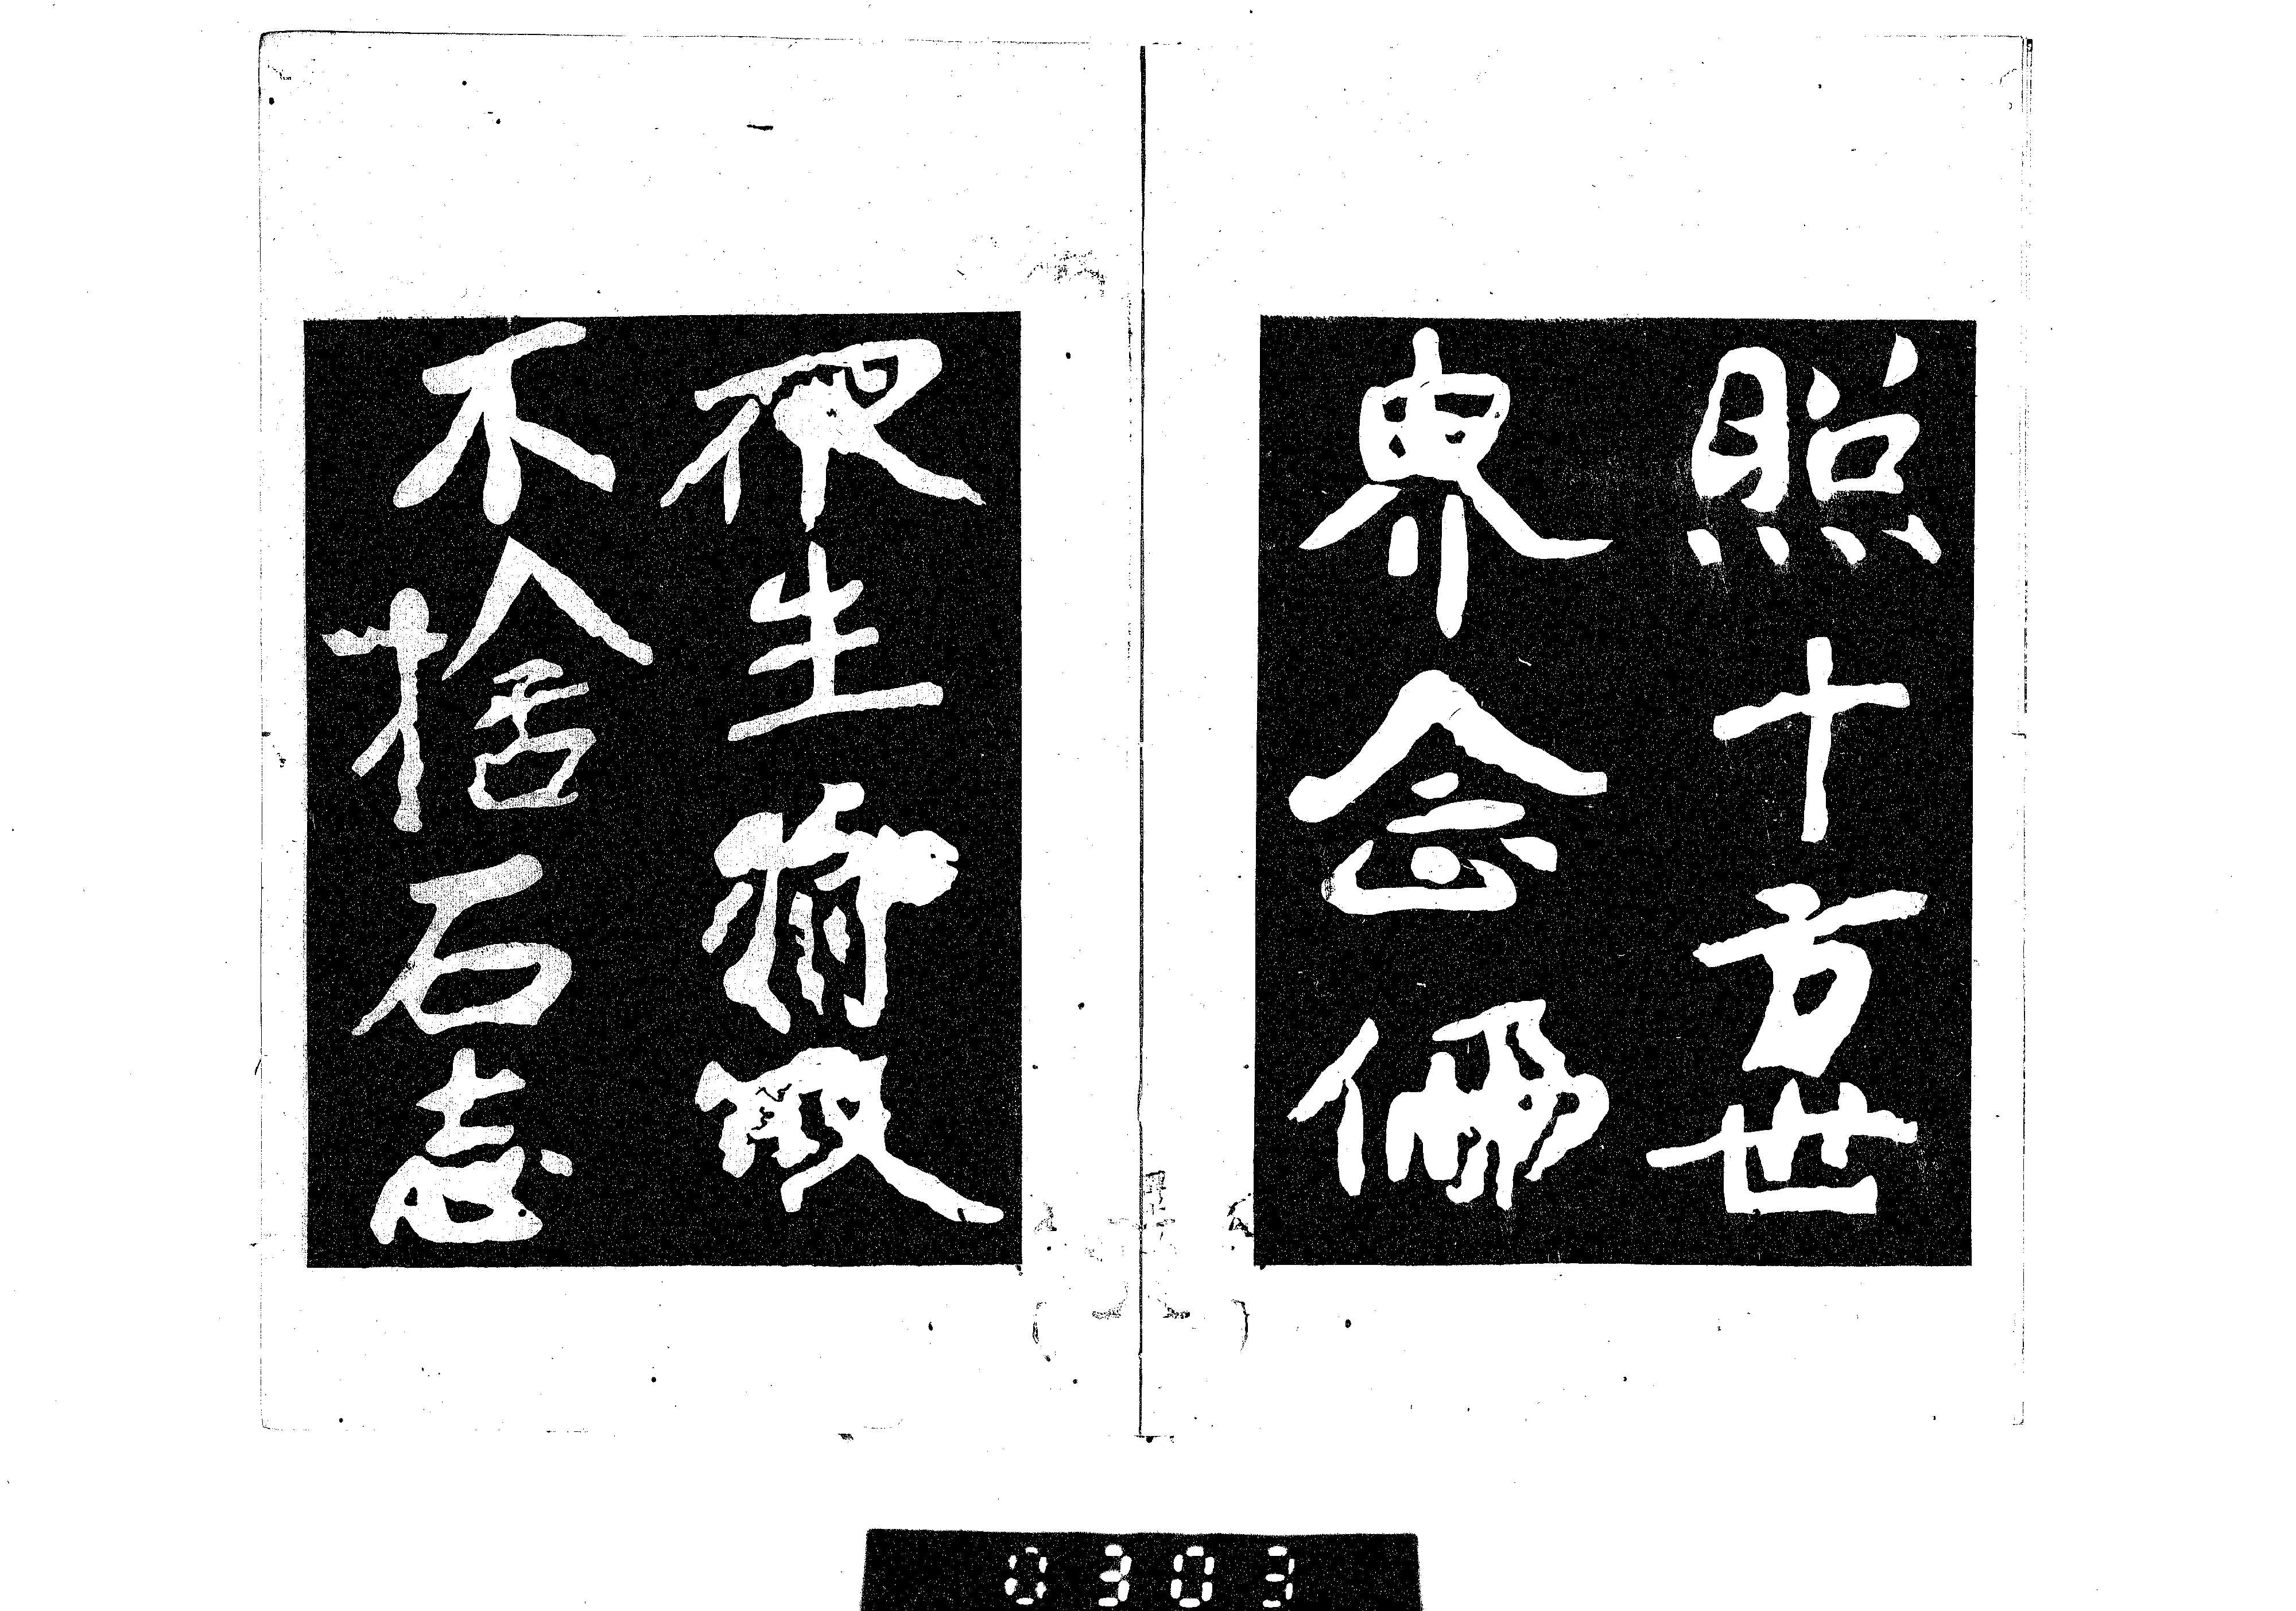 照十方世
界念佛
衆生攝取
不捨石志
0303